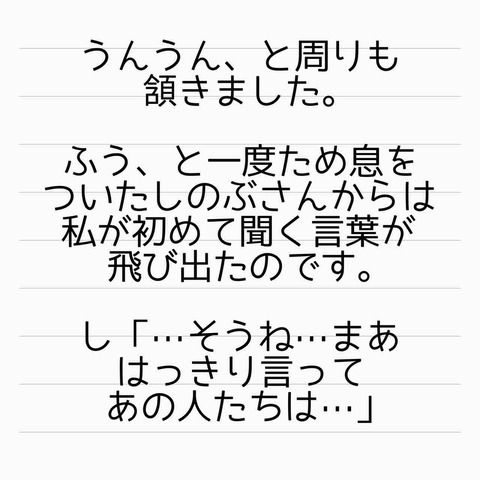 うんうん、と周りも
頷きました。
ふう、と一度ため息を
ついたしのぶさんからは
私が初めて聞く言葉が
飛び出たのです。
し「…そうね…まあ
はっきり言って
あの人たちは…」